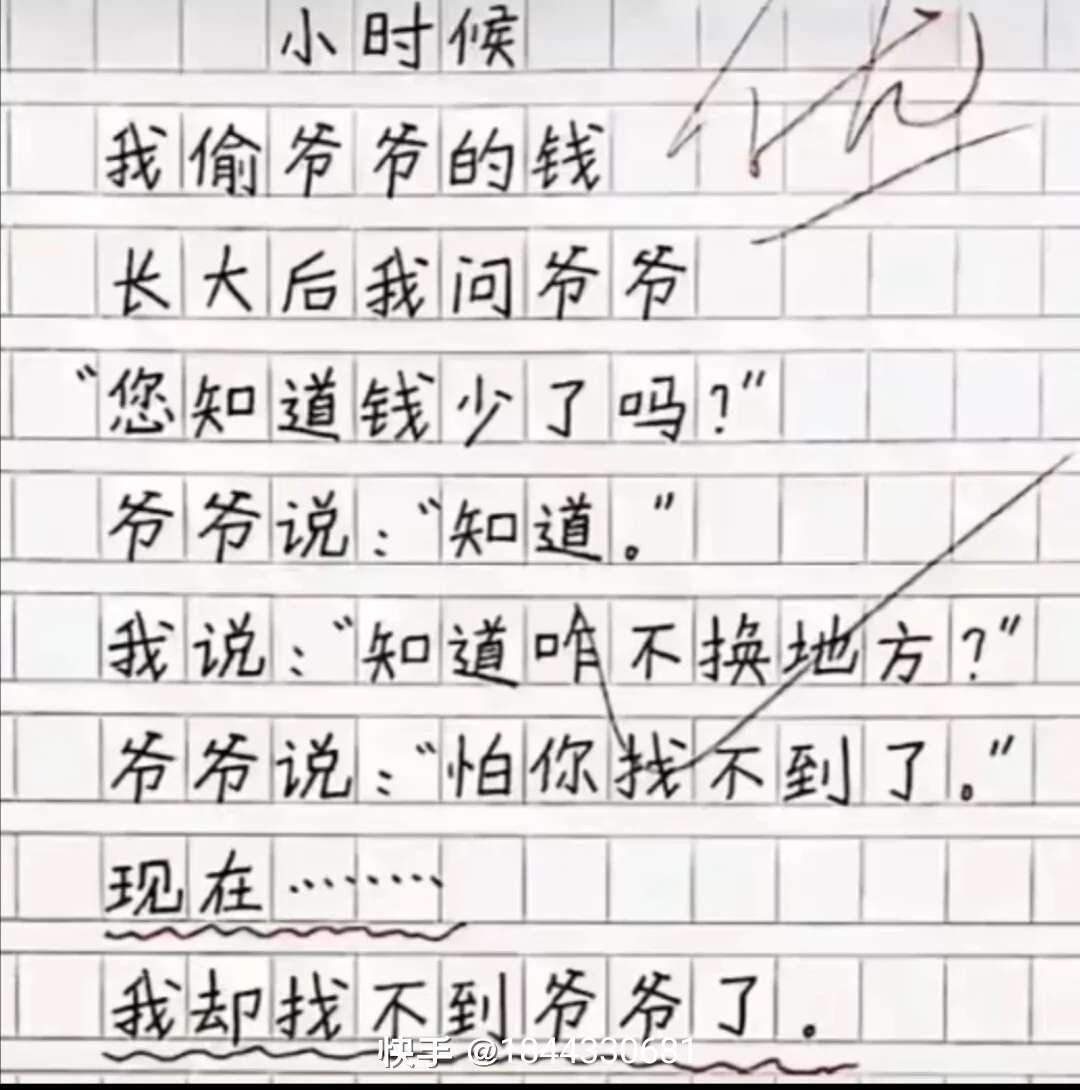 小时候
优
我偷爷爷的钱
长大后我问爷爷
“您知道钱少了吗?”
爷爷说:“知道。”
我说:“知道咋不换地方?”
爷爷说:“怕你找不到了。”
现在········
我却找不到爷爷了.
快手 @1844330681